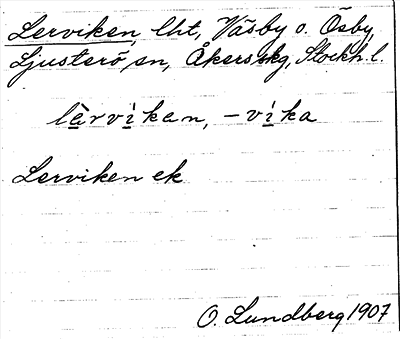 Lerviken, lht, Väsby o. Ösby,
Ljusterö sn, Åkers skg, Stockh. l.
lèrvikan, -vika
Lerviken ek
O. Lundberg 1907